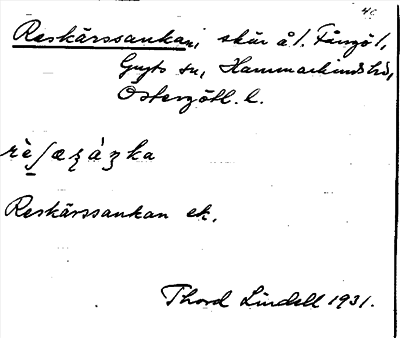 40
Reskärssankan, skär å l. Fångö l,
Gryts sn, Hammarkinds hd,
Östergötl. l.
Reskärssankan ek.
Thord Lindell 1931.